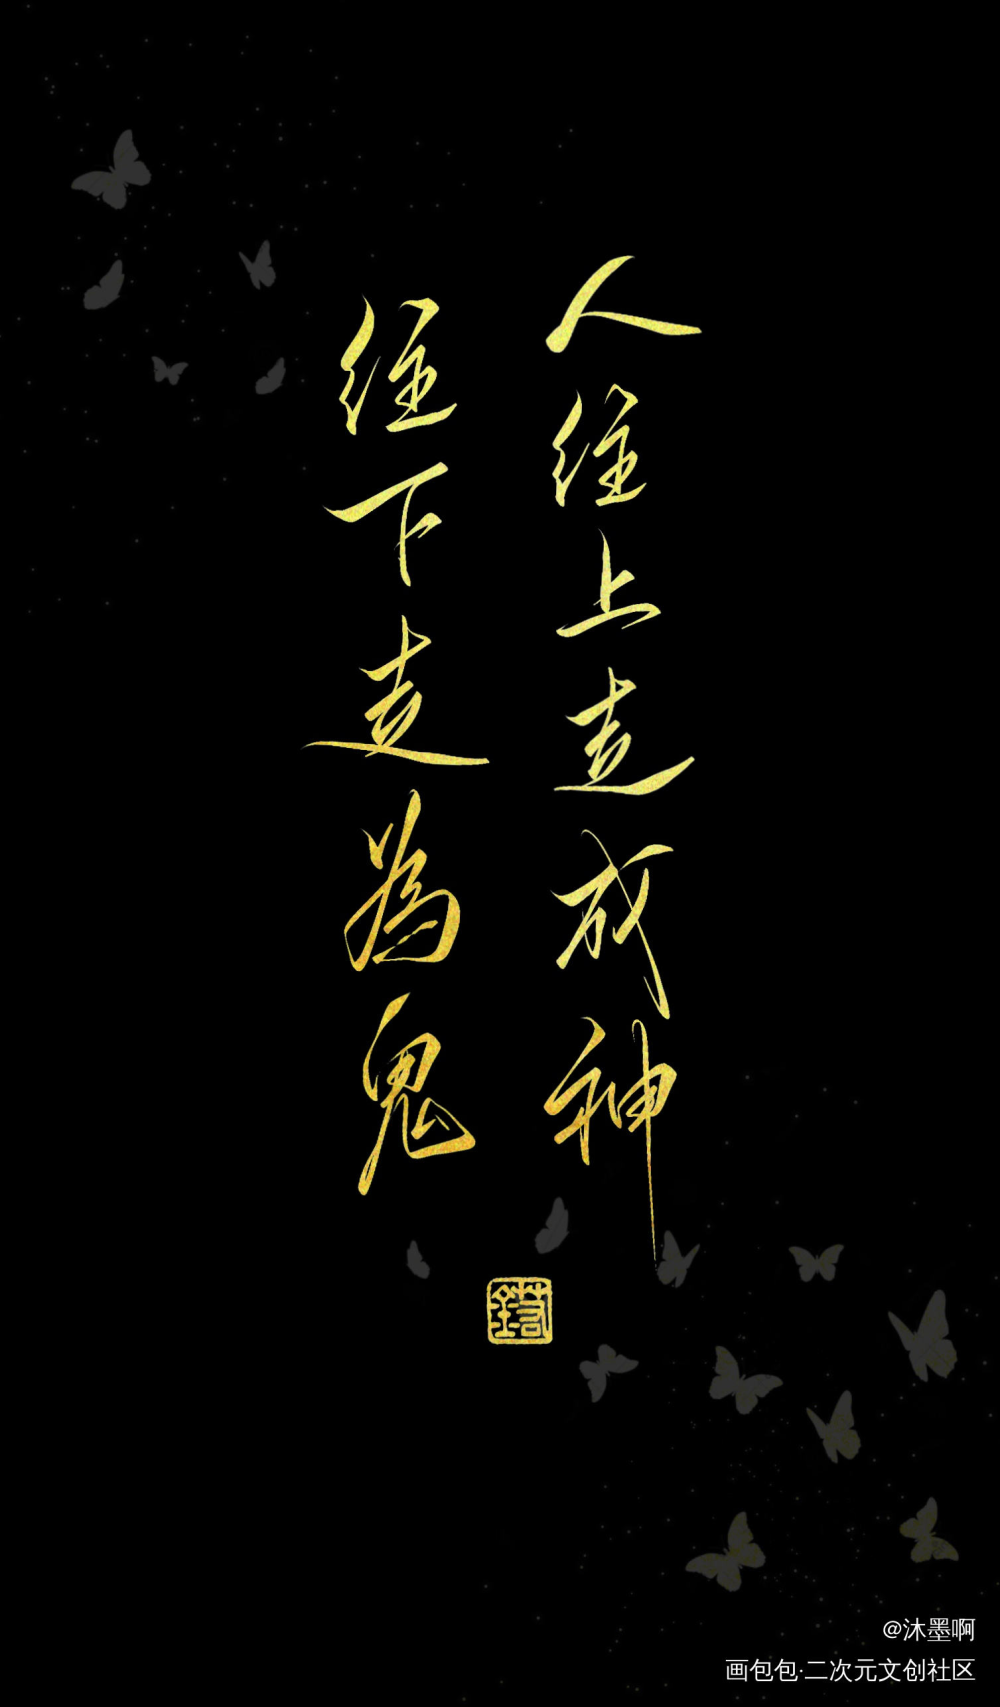 人往上走成神
往下走為鬼
@沐墨啊
画包包·二次元文创社区